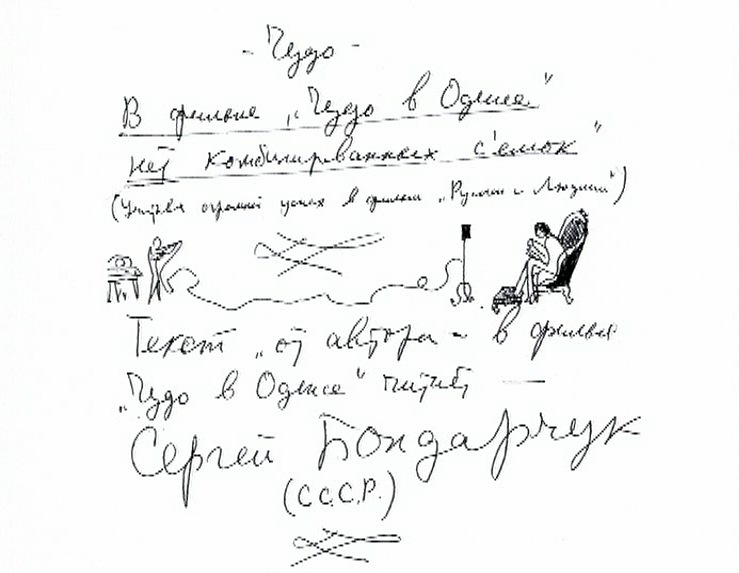 - Чудо -
В фильме „Чудо в Одессе"
нет комбинированных съёмок"
(Учитывая огромный успех в фильме „Руслан и Людмила")
Текст „от автора - в фильме
„Чудо в Одессе" читает —
Сергей Бондарчук
(С.С.С.Р.)